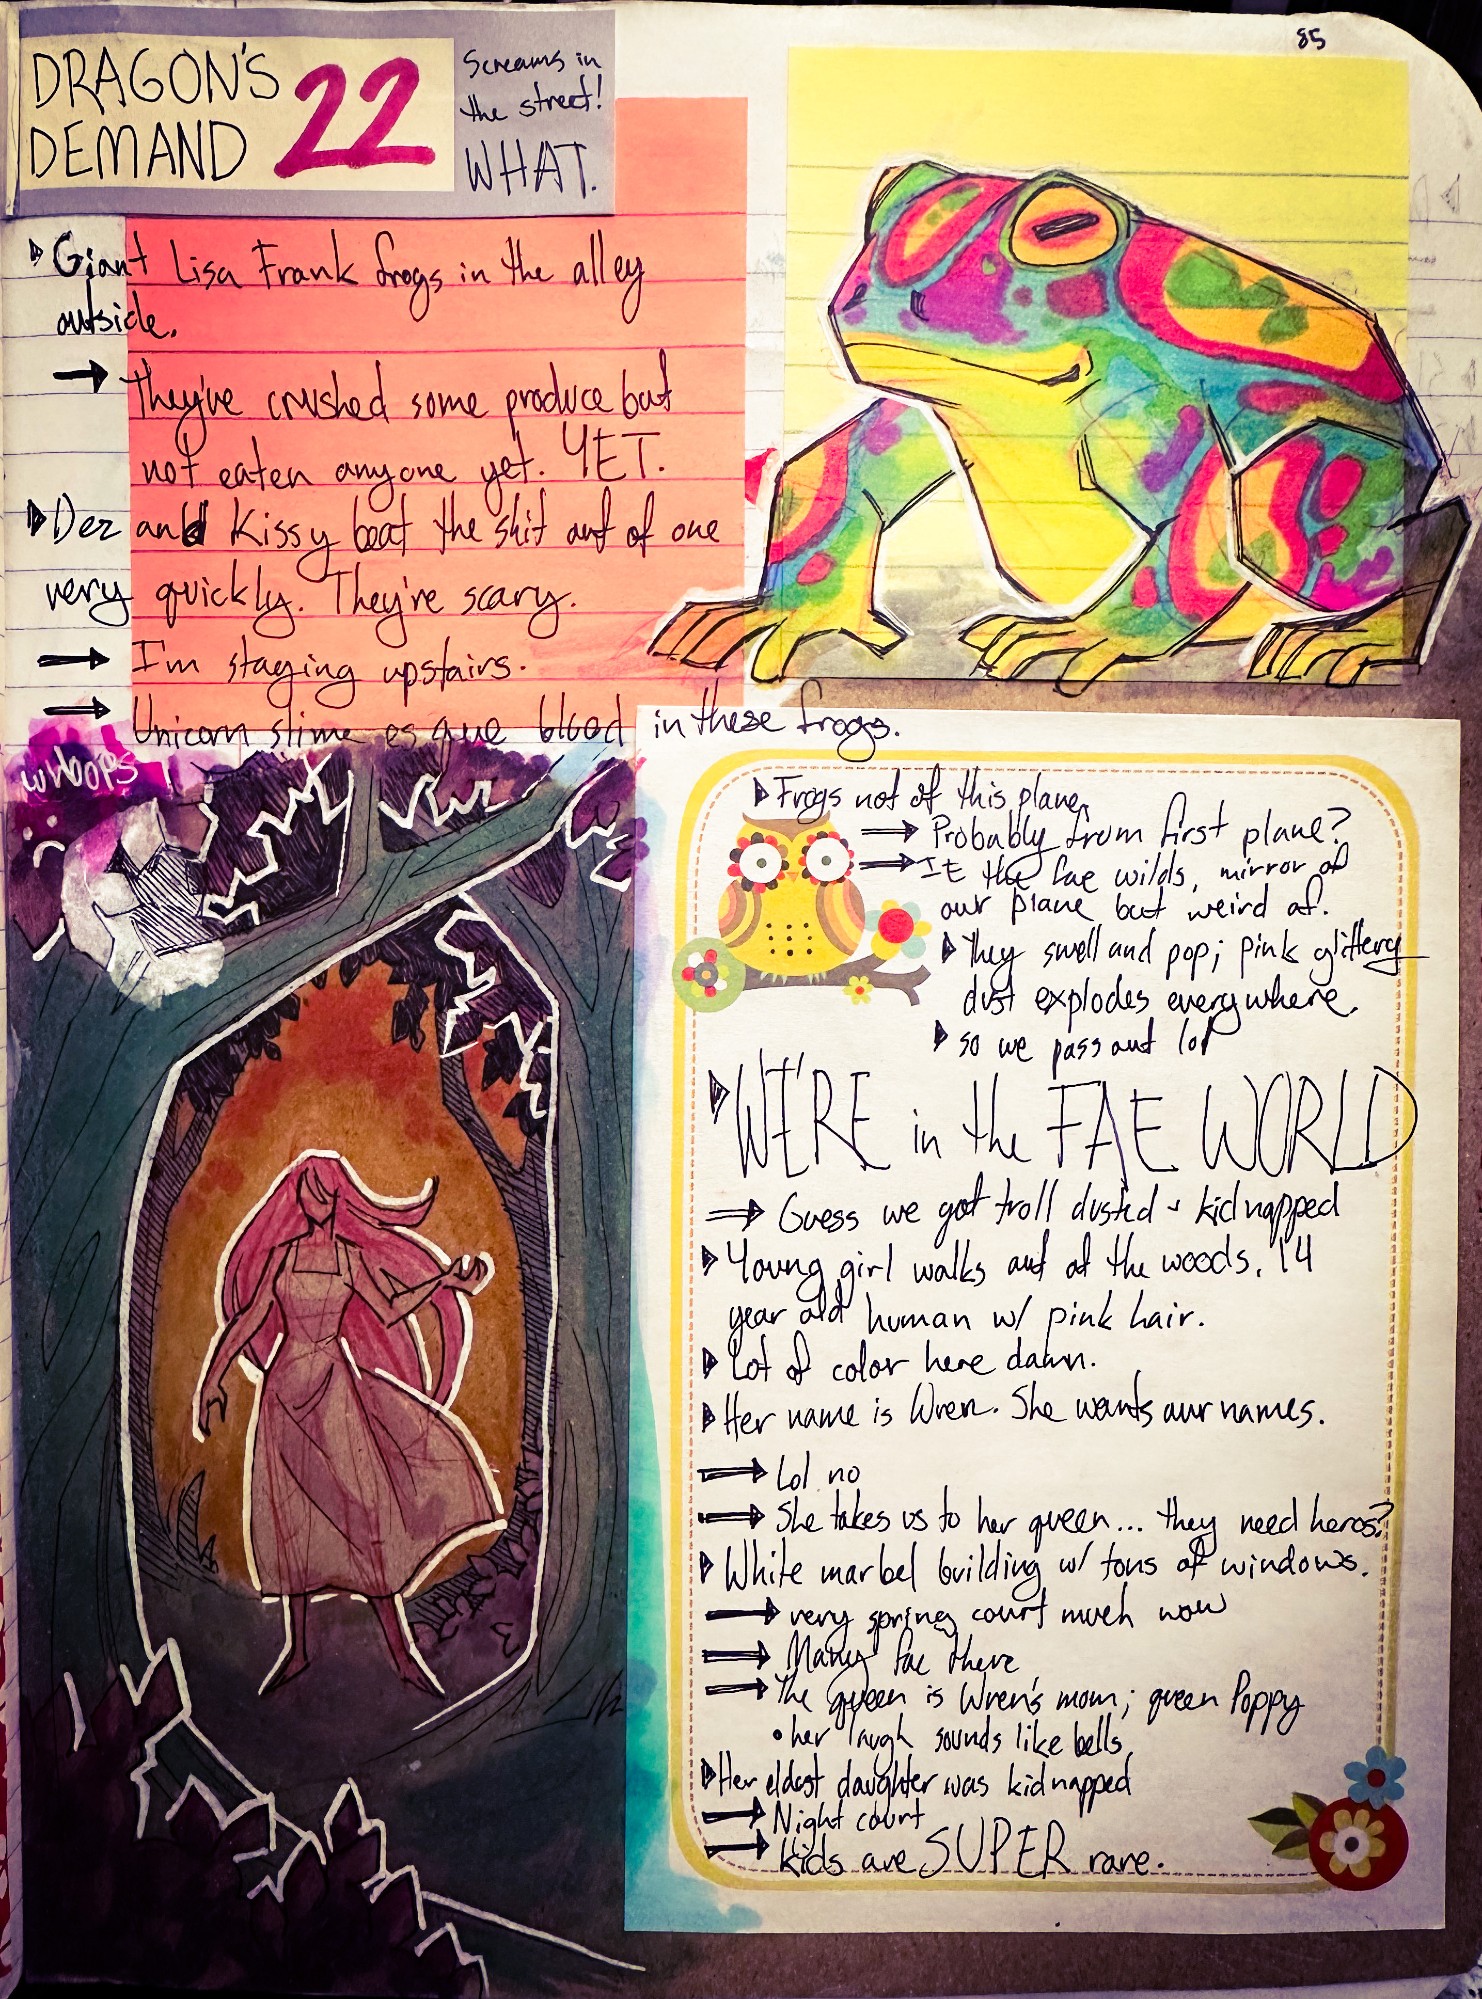 85
DRAGON'S
DEMAND
22
Screams in
the street!
WHAT.
Giant Lisa Frank frogs in the alley
outside.
→ They've crushed some produce but
not eaten anyone yet. YET.
Dez and Kissy beat the shit out of one
very quickly. They're scary.
→ I'm staying upstairs.
→ Unicorn slime esque blood in these frogs.
whoops
Frogs not of this plane.
→ Probably from first plane?
→ IE the fae wilds, mirror of
our plane but weird af.
They swell and pop; pink glittery
dust explodes everywhere.
so we pass out lol
WE'RE in the FAE WORLD
→ Guess we got troll dusted + kidnapped
Young girl walks out of the woods. 14
year old human w/ pink hair.
Lot of color here damn.
Her name is Wren. She wants our names.
→ Lol no
→ She takes us to her queen... they need heros?
White marbel building w/ tons of windows.
→ very spring court much wow
→ Many fae there
→ The queen is Wren's mom; queen Poppy
• her laugh sounds like bells
Her eldest daughter was kidnapped
→ Night court
→ kids are SUPER rare.